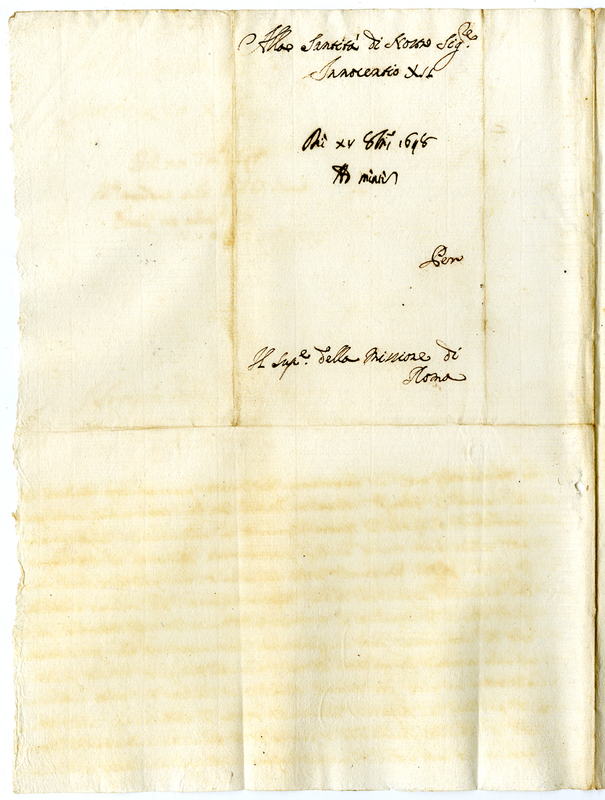 Alla Santità di Nostro Sig.re
Innocentio XII
Die xv 1698
Per
Il Sup.re della Missione di
Roma